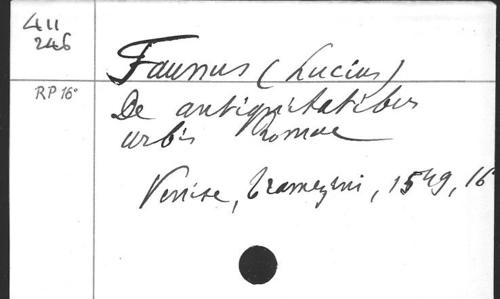 411
246
Faunus (Lucius)
RP 16°
De antiquitatibus
urbis Romae
Venise, Tramezini, 1549, 16°